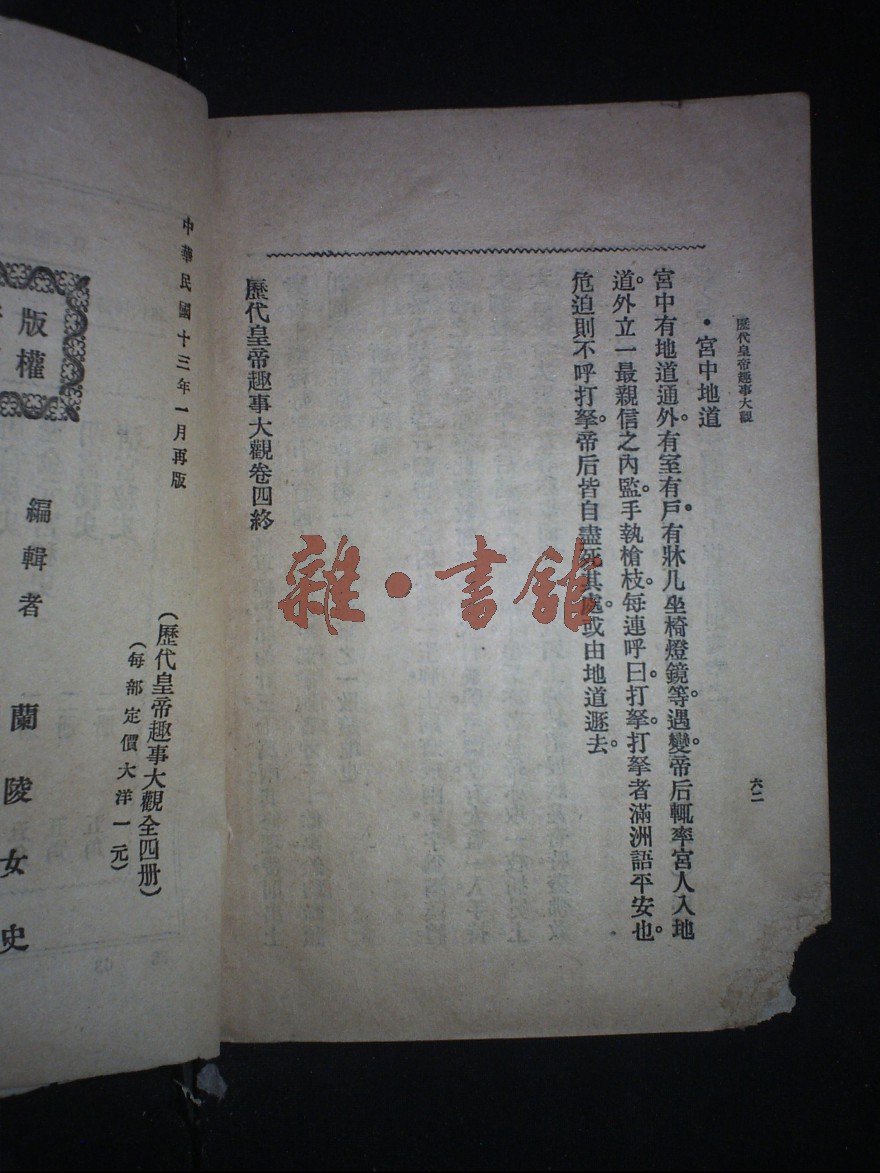 歷代皇帝趣事大觀
六二
・宮中地道
宮中有地道通外。有室有戶。有牀几坐椅燈鏡等。遇變。帝后輒率宮人入地
道。外立一最親信之內監。手執槍枝。每連呼曰。打拏。打拏者滿洲語平安也。
危迫則不呼打拏。帝后皆自盡死其處。或由地道遯去。
歷代皇帝趣事大觀卷四終
雜・書館
中華民國十三年一月再版
(歷代皇帝趣事大觀全四册)
(每部定價大洋一元)
編輯者 蘭陵女史
版權